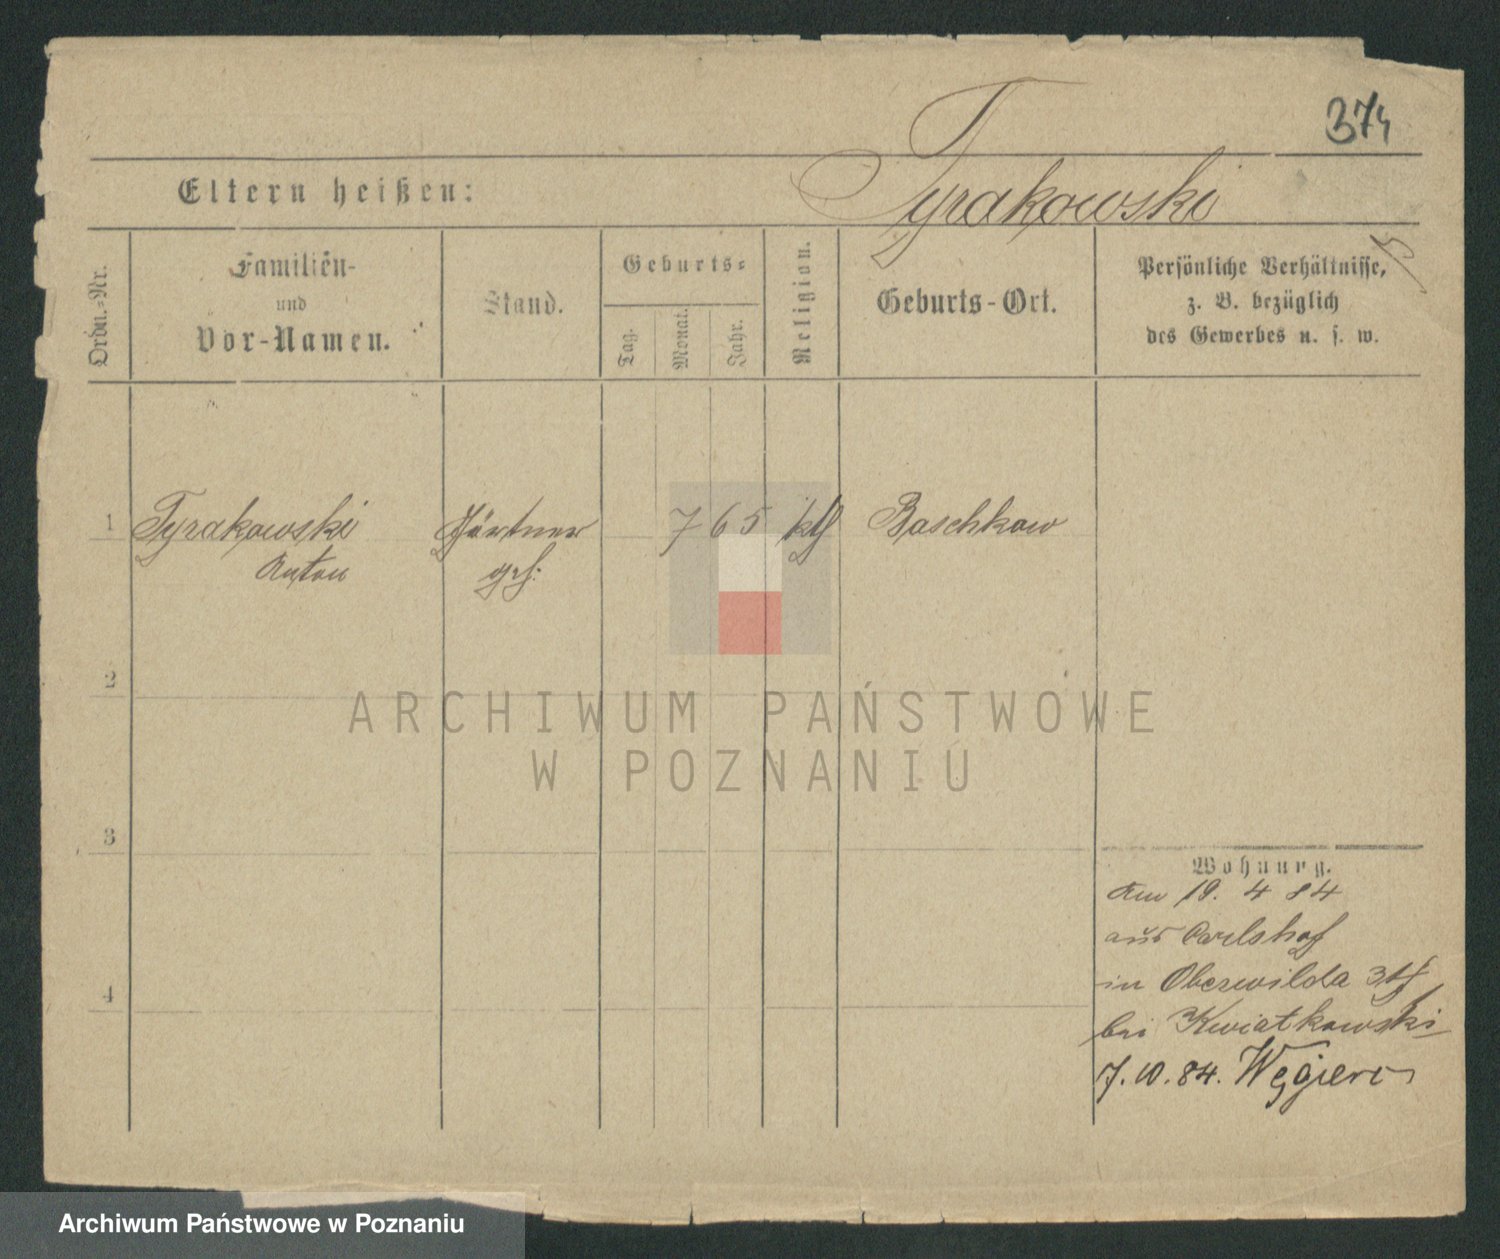 374
Tyrakowski
Eltern heißen:
Ordn.-Nr.
Familien-
und
Vor-Namen.
Stand.
Geburts-
Tag.
Monat.
Jahr.
Religion.
Geburts-Ort.
Persönliche Verhältnisse,
z. B. bezüglich
des Gewerbes u. s. w.
1 Tyrakowski Gärtner 7 65 kth Baschkow
Anton geh:
2
3
4
Wohnung.
Am 19. 4 84
aus Carlshof
in Oberwilda
bei Kwiatkowski
7. 10. 84. Węgierc
ARCHIWUM PAŃSTWOWE
W POZNANIU
Archiwum Państwowe w Poznaniu